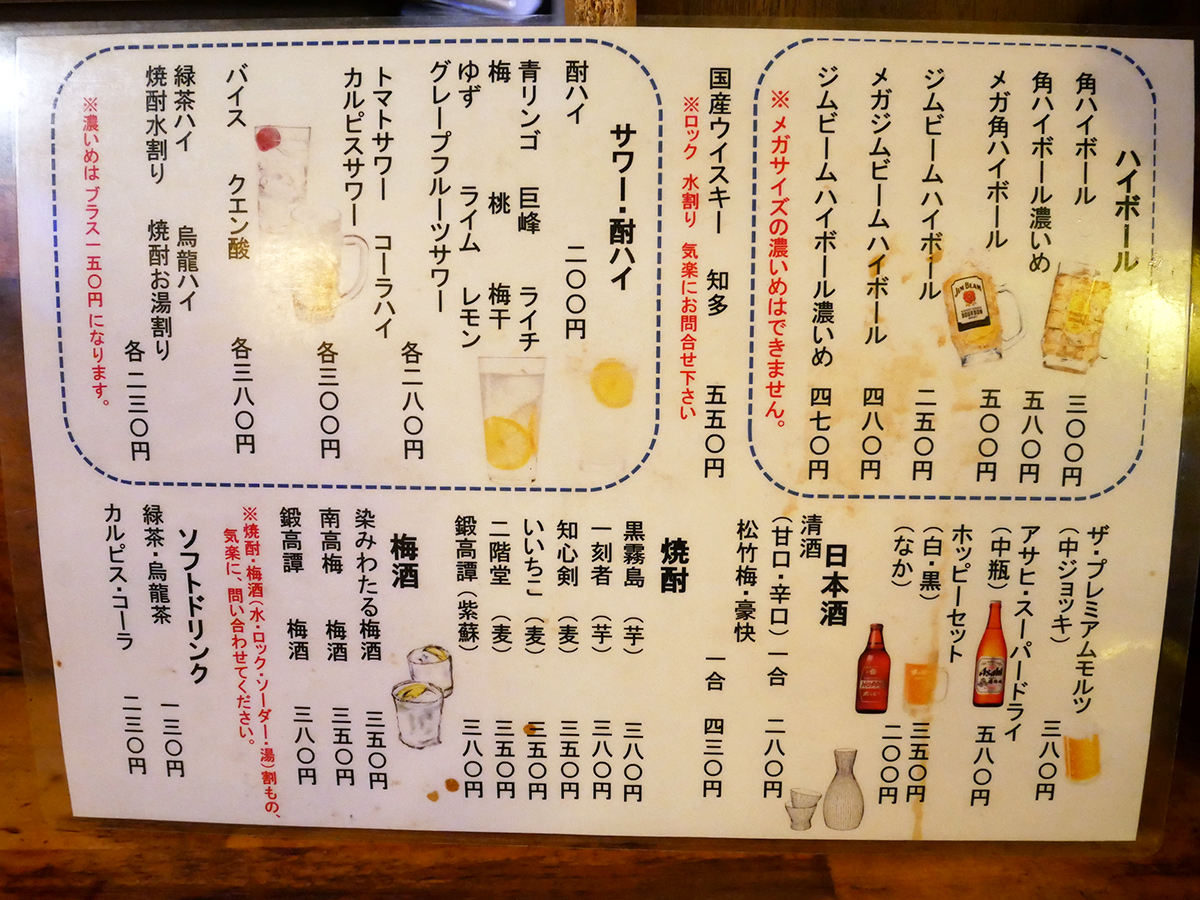 ハイボール
角ハイボール 三〇〇円
角ハイボール濃いめ 五八〇円
メガ角ハイボール 五〇〇円
ジムビームハイボール 二五〇円
メガジムビームハイボール 四八〇円
ジムビームハイボール濃いめ 四七〇円
※メガサイズの濃いめはできません。
国産ウイスキー 知多 五五〇円
※ロック 水割り 気楽にお問合せ下さい
サワー・酎ハイ
酎ハイ 二〇〇円
青リンゴ 巨峰 ライチ
梅 桃 梅干
ゆず ライム レモン
グレープフルーツサワー 各二八〇円
トマトサワー コーラハイ
カルピスサワー 各三〇〇円
バイス クエン酸 各三八〇円
緑茶ハイ 烏龍ハイ
焼酎水割り 焼酎お湯割り 各二三〇円
※濃いめはプラス一五〇円になります。
ザ・プレミアムモルツ
(中ジョッキ) 三八〇円
アサヒ・スーパードライ
(中瓶) 五八〇円
ホッピーセット
(白・黒) 三五〇円
(なか) 二〇〇円
日本酒
清酒
(甘口・辛口)一合 二八〇円
松竹梅・豪快 一合 四三〇円
焼酎
黒霧島 (芋) 三八〇円
一刻者 (芋) 三八〇円
知心剣 (麦) 三五〇円
いいちこ (麦) 三五〇円
二階堂 (麦) 三五〇円
鍛高譚(紫蘇) 三八〇円
梅酒
染みわたる梅酒 三五〇円
南高梅 梅酒 三五〇円
鍛高譚 梅酒 三八〇円
※焼酎・梅酒(水・ロック・ソーダー・湯)割もの、
気楽に、問い合わせてください。
ソフトドリンク
緑茶・烏龍茶 一三〇円
カルピス・コーラ 二三〇円
JIM BEAM
BOURBON
Asahi